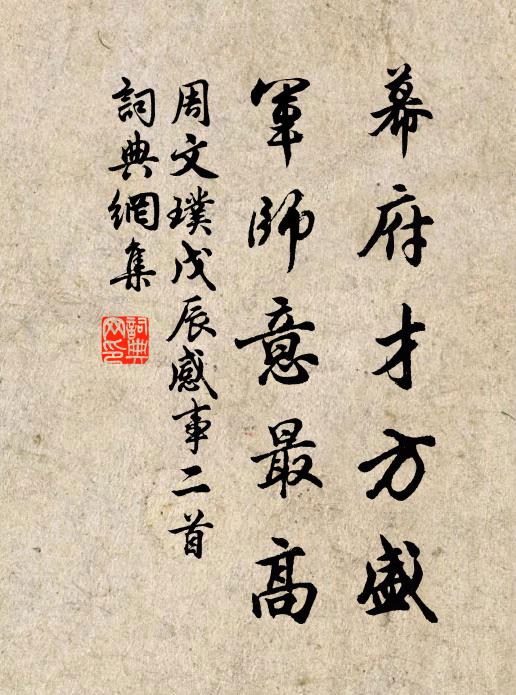 幕府才方盛
軍師意最高
周文璞戊辰感事二首
詞典網集
詞典網印